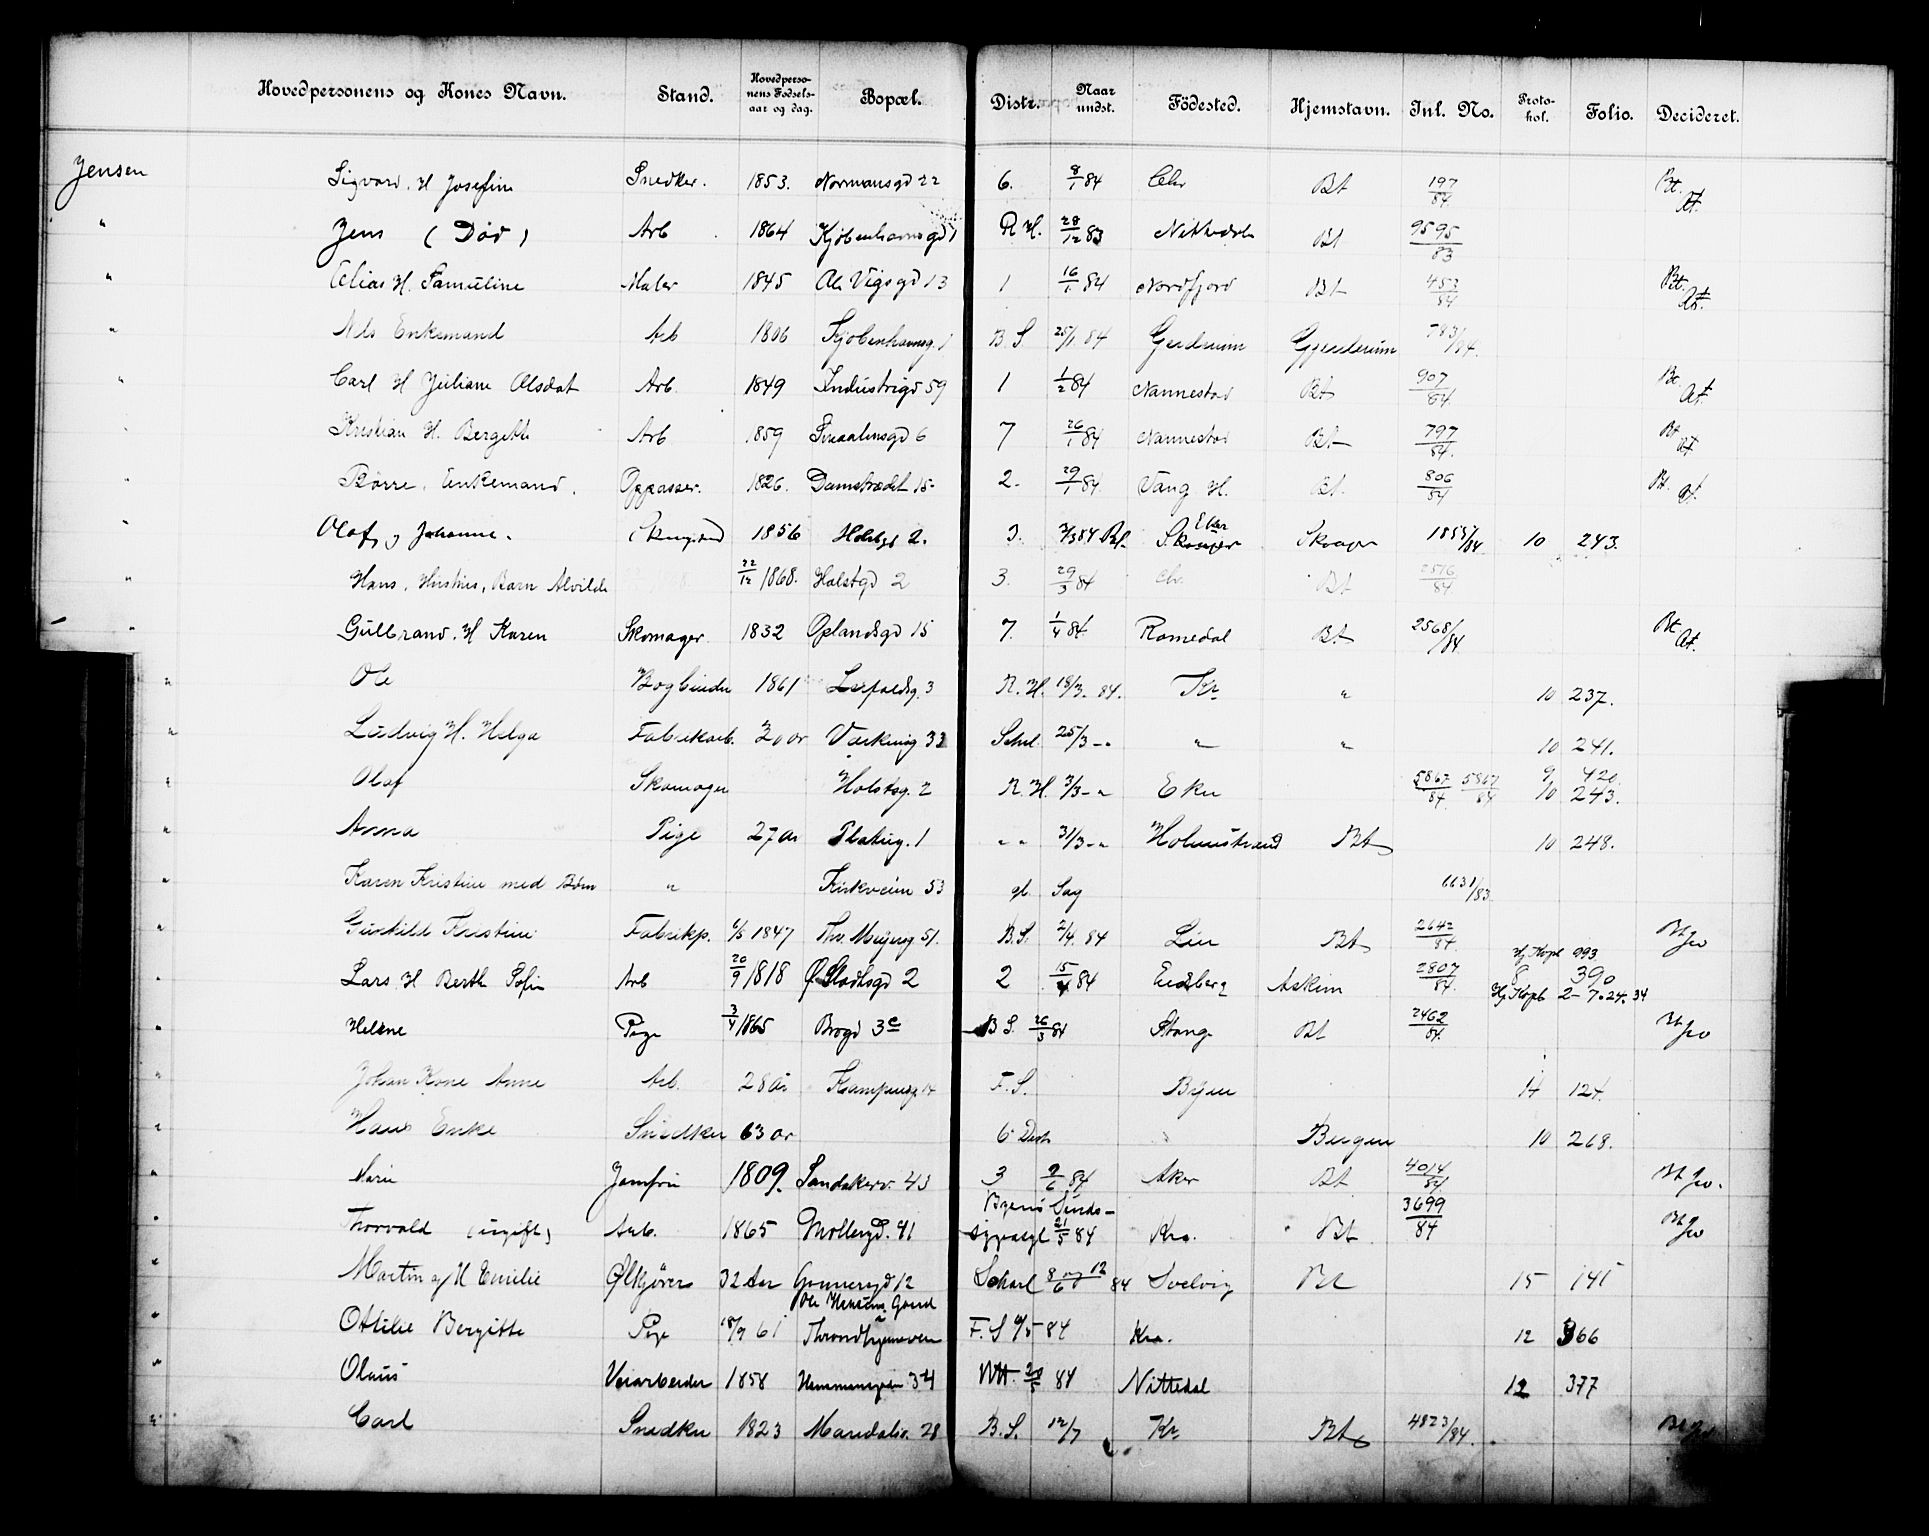 Hovedpersonens og Kones Navn. Stand. Hovedpersonens Fødselsaar og dag. Bopæl. Distr. Naar undst. Födested. Hjemstavn. Inl. No. Protokol. Folio. Decideret.
Jensen Sigvard. H Josefine Snedker. 1853. Normansgd 22 6. 8/1 84 Chr Bt 197/84 Bt. At.
" Jens (Død) Arb 1864 Kjøbenhavnsgd 1 R. H. 28/12 83 Nittedal Bt 9595/83
" Elias H. Pauline Maler 1845 Ole Vigsgd 13 1 16/1 84 Nordfjord Bt 453/84 Bt. At.
" Nils Enkemand Arb 1806 Kjøbenhavnsg. 1 B. S. 25/1 84 Gjerdrum Gjerdrum 783/84.
" Carl H Juliane Olsdat Arb. 1849 Industrigd 59 1 1/2 84 Nannestad Bt 907/84 Bt. At.
Kristian H. Bergitte Arb 1859 Smaalensgd 6 7 26/1 84 Nannestad Bt 797/84. Bt At
" Børre. Enkemand. Oppasser. 1826. Damstrædet 15 2. 29/1 84. Vang H. Bt. 806/84 Bt. At.
" Olaf og Johanne. 1856 Holstgd 2. 3. 3/3 84 Eker Skoger 1855/84 10 243.
" Hans, Hustru, Barn Alvilde 22/12 1868. Holstgd 2 3. 29/3 84 Chr. Bt 2516/84
" Gulbrand. H Karen Skomager. 1832 Oplandsgd 15 7. 1/4 84. Romedal Bt 2568/84 Bt At.
" Ole Bogbinder 1861 3 R. H. 18/3. 84. Kr " 10 237.
" Ludvig H. Helga Fabrikarb. 30 år 33 25/3 - " " " 10 241.
" Olaf Skomager Holstsg. 2 R. H. 3/3 - " Eker 5867/84 5867/84 9 420. 10 243.
" Anna Pige 27 år Plateug. 1 " " 31/3 - " Holmestrand Bt 10 248.
" Karen Kristine med Børn " Kirkveien 53 gl. Sag 6631/83.
" Gunhild Kristine Fabrikp. 6/5 1847 Thv. Meyersg 51. B. S. 2/4. 84 Lier Bt 2642/84. Bt
Hj Kopb 993
" Lars H Berthe Sofie Arb 20/9 1818 Ø. Slodtsgd 2 2 15/4 84 Eidsberg Askim 2807/84. 8 390
Hj Kopb 2-7.24. 34
" Helene Pige 3/4 1865 Brogd 3 c B. S. 26/3 84 Stange Bt 2462/84. Bt
" Johan Kone Anne Arb. 28 år Kampensg. 14 F. S. Byen 14 124.
" Hans Enke Snedker 63 år 6 Distr. Bergen 10 268.
" Marie Jomfru 1809. Sandakerv. 43 3 2/6 84 Aker Bt 4014/84. Bt
" Thorvald (ugift) Arb. 1865 Møllergd. 41 Byens Sindssygeasyl 21/5 84 Kra. Bt 3699/84 Bt
" Martin og H Emilie Ølkjører 32 Aar Gunnersgd 12 8 og 12/6 84 Svelvig Bt 15 141
" Ottilie Bergitte Pige 18/9 61 Gaard Throndhjemsveien F. S 6/5 84 Kra. 12 366
" Olaus Veiarbeider 1858 34 20/5 84 Nittedal 12 377
" Carl Snedker 1823 Maridalsv. 28 B. S. 12/7 Kr Bt 4823/84.